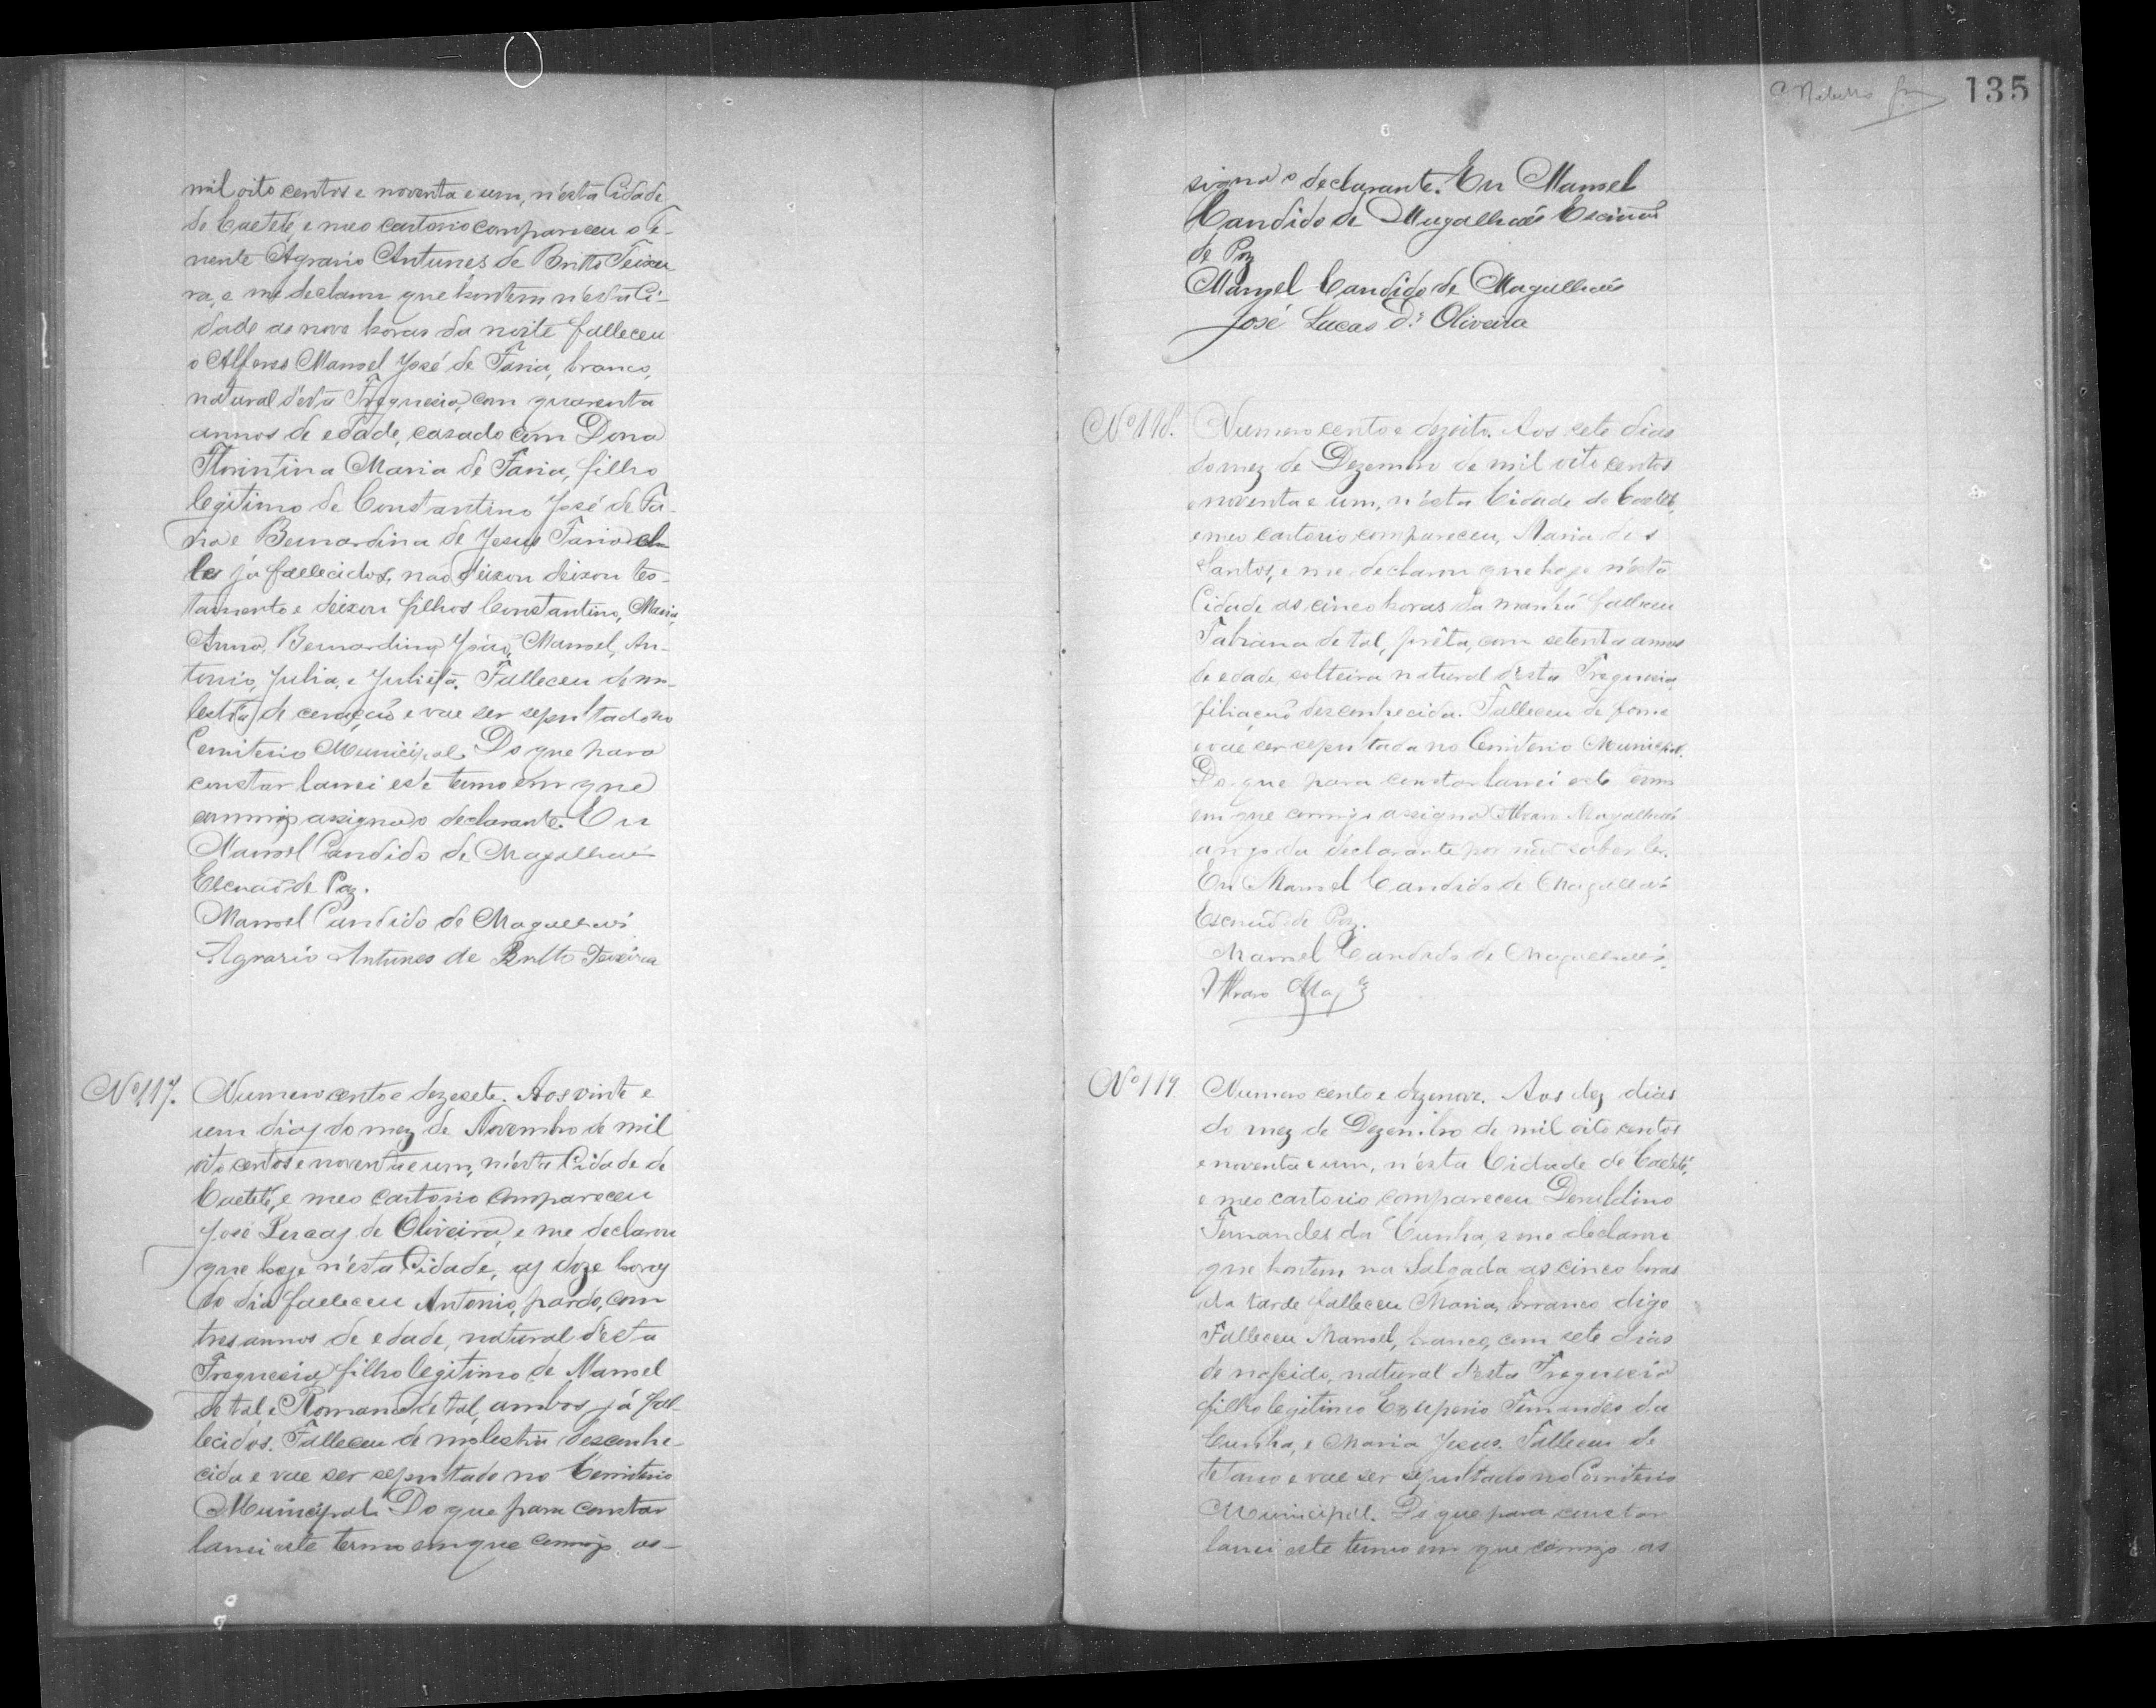 mil oito centos e noventa e um, n'esta Cidade
de Caeteté e meo cartorio compareceu o Te-
nente Agrario Antunes de Britto Teixei
ra, e me declarou que hontem n'esta Ci-
dade as nove horas da noite falleceu
o Alferes Manoel José de Faria, branco,
natural d'esta Freguesia, com quarenta
annos de edade, casado com Dona
Florintina Maria de Faria, filho
legitimo de Constantino José de Fa-
ria e Bernardina de Jesus Faria el-
les já fallecidos, não deixou deixou tes-
tamento e deixou filhos Constantino, Maria,
Anna, Bernardina, João, Manoel, An-
tonio, Julia, e Julieta. Falleceu de mo-
lestia de coração e vae ser sepultado no
Cemiterio Municipal. Do que para
constar lancei este termo em que
commigo assigna o declarante. Eu
Manoel Candido de Magalhães
Escrivão de Paz.
Manoel Candido de Magalhães
Agrario Antunes de Britto Teixeira
Nº 117.
Numero cento e dezesete. Aos vinte e
um dias do mez de Novembro de mil
oito centos e noventa e um, n'esta Cidade de
Caeteté, e meo cartorio compareceu
José Lucas de Oliveira, e me declarou
que hoje n'esta Cidade, as doze horas
do dia falleceu Antonio, pardo, com
tres annos de edade, natural d'esta
Freguesia, filho legitimo de Manoel
de tal e Romana de tal, ambos já fal-
lecidos. Falleceu de molestia desconhe-
cida e vae ser sepultado no Cemiterio
Municipal. Do que para constar
lancei este termo em que commigo as-
135
signa o declarante. Eu Manoel
Candido de Magalhães Escrivão
de Paz
Manoel Candido de Magalhães
José Lucas d'Oliveira
Nº 118.
Numero cento e dezoito. Aos sete dias
do mez de Dezembro de mil oito centos
e noventa e um, n'esta Cidade de Caeteté,
e meo cartorio compareceu, Maria dos
Santos, e me declarou que hoje n'esta
Cidade as cinco horas da manhã falleceu
Fabiana de tal, prêta, com setenta annos
de edade, solteira natural d'esta Freguesia,
filiação desconhecida. Falleceu de fome
e vae ser sepultada no Cemiterio Municipal.
Do que para constar lancei este termo
em que commigo assigna Alvaro Magalhães
a rogo da declarante por não saber ler.
Eu Manoel Candido de Magalhães
Escrivão de Paz.
Manoel Candido de Magalhães
Alvaro Mag.es
Nº 119
Numero cento e dezenove. Aos dez dias
do mez de Dezembro de mil oito centos
e noventa e um, n'esta Cidade de Caeteté,
e meo cartorio compareceu Deraldino
Fernandes da Cunha, e me declarou
que hontem na Salgada as cinco horas
da tarde falleceu Maria, branco, digo
Falleceu Manoel, branco, com sete dias
de nascido, natural d'esta Freguesia
filho legitimo Exuperio Fernandes da
Cunha, e Maria Jesus. Falleceu de
tetano e vae ser sepultado no Cemiterio
Municipal. Do que para constar
lancei este termo em que commigo as